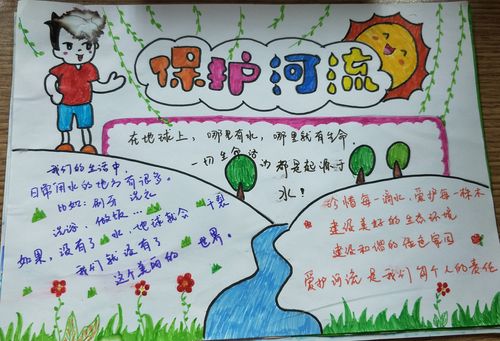 保护河流
在地球上,哪里有水,哪里就有生命.
一切生命活动都是起源于
水!
我们的生活中.
日常用水的地方有很多.
比如:刷牙 洗衣
洗浴、做饭...
如果,没有了水,地球就会干裂
我们就没有了
这个美丽的世界。
珍惜每一滴水,爱护每一棵木
建设美好的生态环境
建设和谐的绿色家园
爱护河流是我们每个人的责任